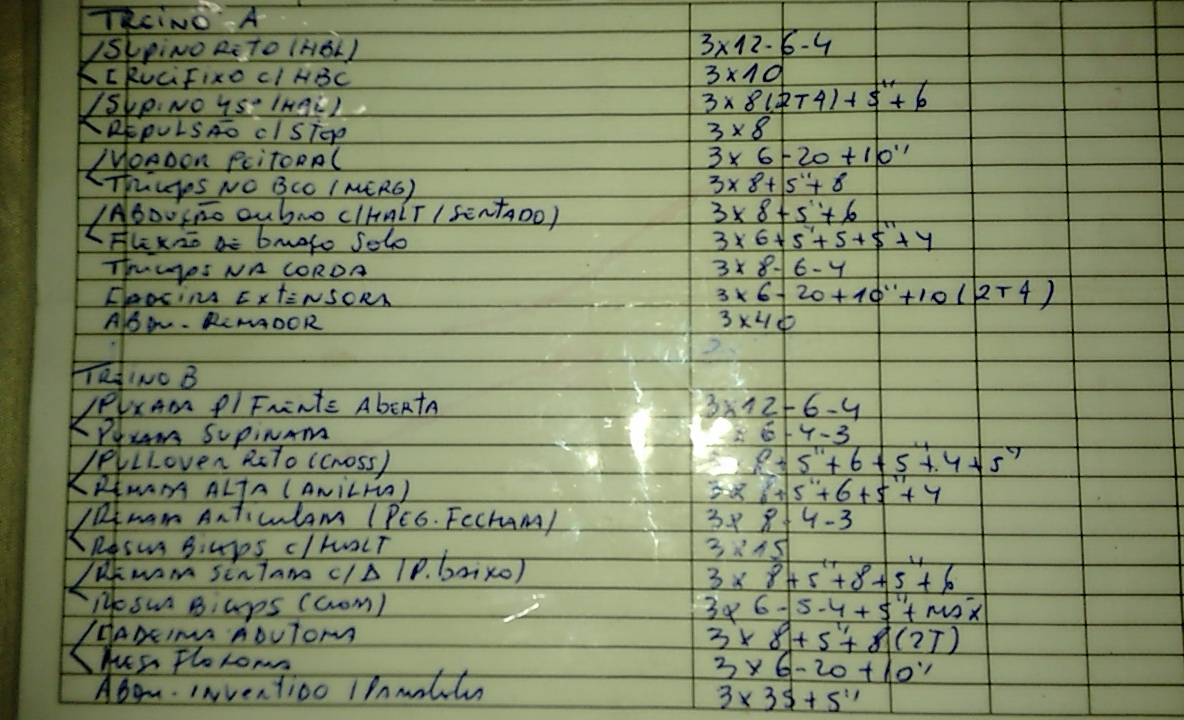 TREINO A
SUPINO RETO (HBL) 3x12-6-4
CRUCIFIXO C/ HBC 3x10
SUPINO 45° (HBL) 3x8(2T4)+5"+6
REPULSÃO C/ STEP 3x8
VOADOR PEITORAL 3x6-20+10"
TRICEPS NO BCO (MERG) 3x8+5"+8
ABDUÇÃO OMBRO C/HALT (SENTADO) 3x8+5"+6
FLEXÃO DE BRAÇO SOLO 3x6+5"+5+5"+4
TRICEPS NA CORDA 3x8-6-4
CADEIRA EXTENSORA 3x6-20+10"+10(2T4)
ABDM. REMADOR 3x40
TREINO B
PUXADA P/ FRENTE ABERTA 3x12-6-4
PUXADA SUPINADA x6-4-3
PULLOVER RETO (CROSS) 8+5"+6+5"+4+5"
REMADA ALTA (ANILHA) 3x8+5"+6+5"+4
REMADA ARTICULADA (PEG. FECHADA) 3x8-4-3
ROSCA BICEPS C/HALT 3x15
REMADA SENTADA C/Δ (P. baixo) 3x8+5"+8+5"+6
ROSCA BICEPS (CROSS) 3x6-5-4+5"+MÁX
CADEIRA ADUTORA 3x8+5"+8(2T)
MESA FLEXORA 3x6-20+10"
ABDM. INVERTIDO (Paralelas 3x35+5"